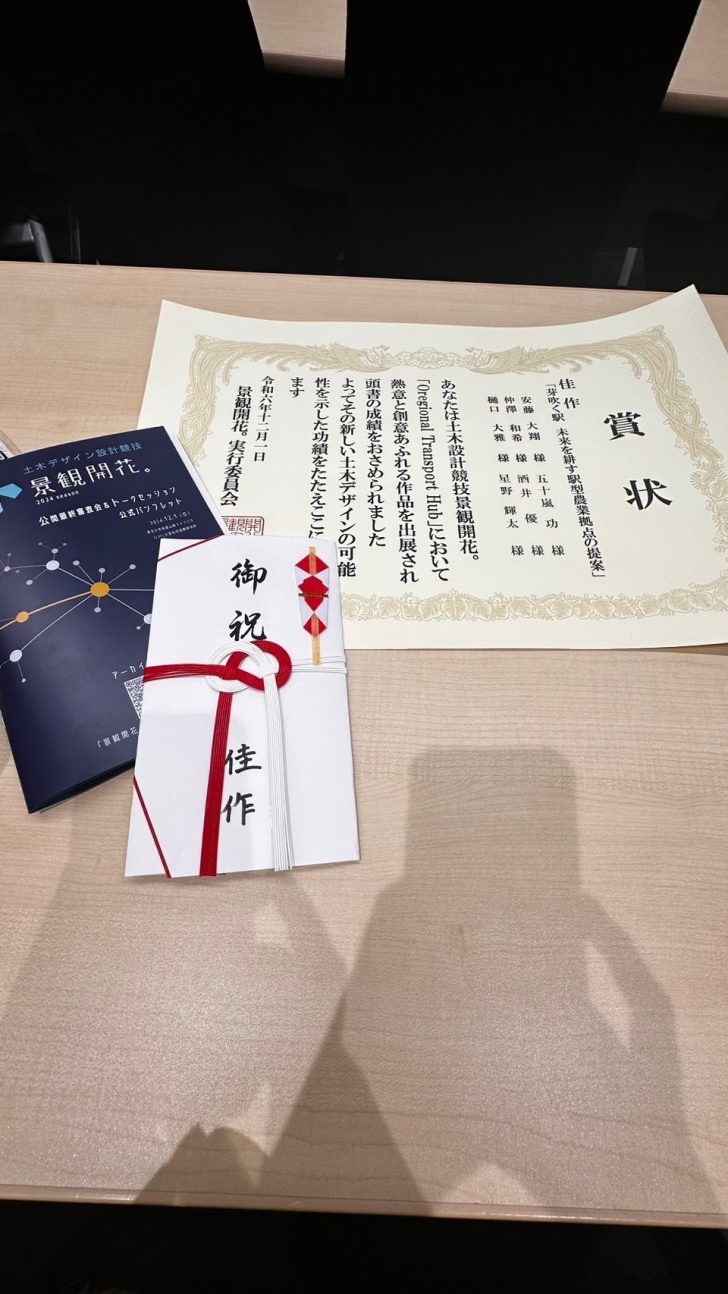 賞状
佳作
「芽吹く駅 未来を耕す駅型農業拠点の提案」
安藤 大翔 様 五十嵐 功 様
仲澤 和希 様 酒井 優 様
樋口 大雅 様 星野 輝太 様
あなたは土木設計競技景観開花。
「Oregional Transport Hub」において
熱意と創意あふれる作品を出展され
頭書の成績をおさめられました
よってその新しい土木デザインの可能
性を示した功績をたたえここに
ます
令和六年十二月一日
景観開花。実行委員会
土木デザイン設計競技
景観開花。
2024 season
公開最終審査会&トークセッション
公式パンフレット
2024.12.1(日)
アーカイ
「景観開花
御祝
佳作